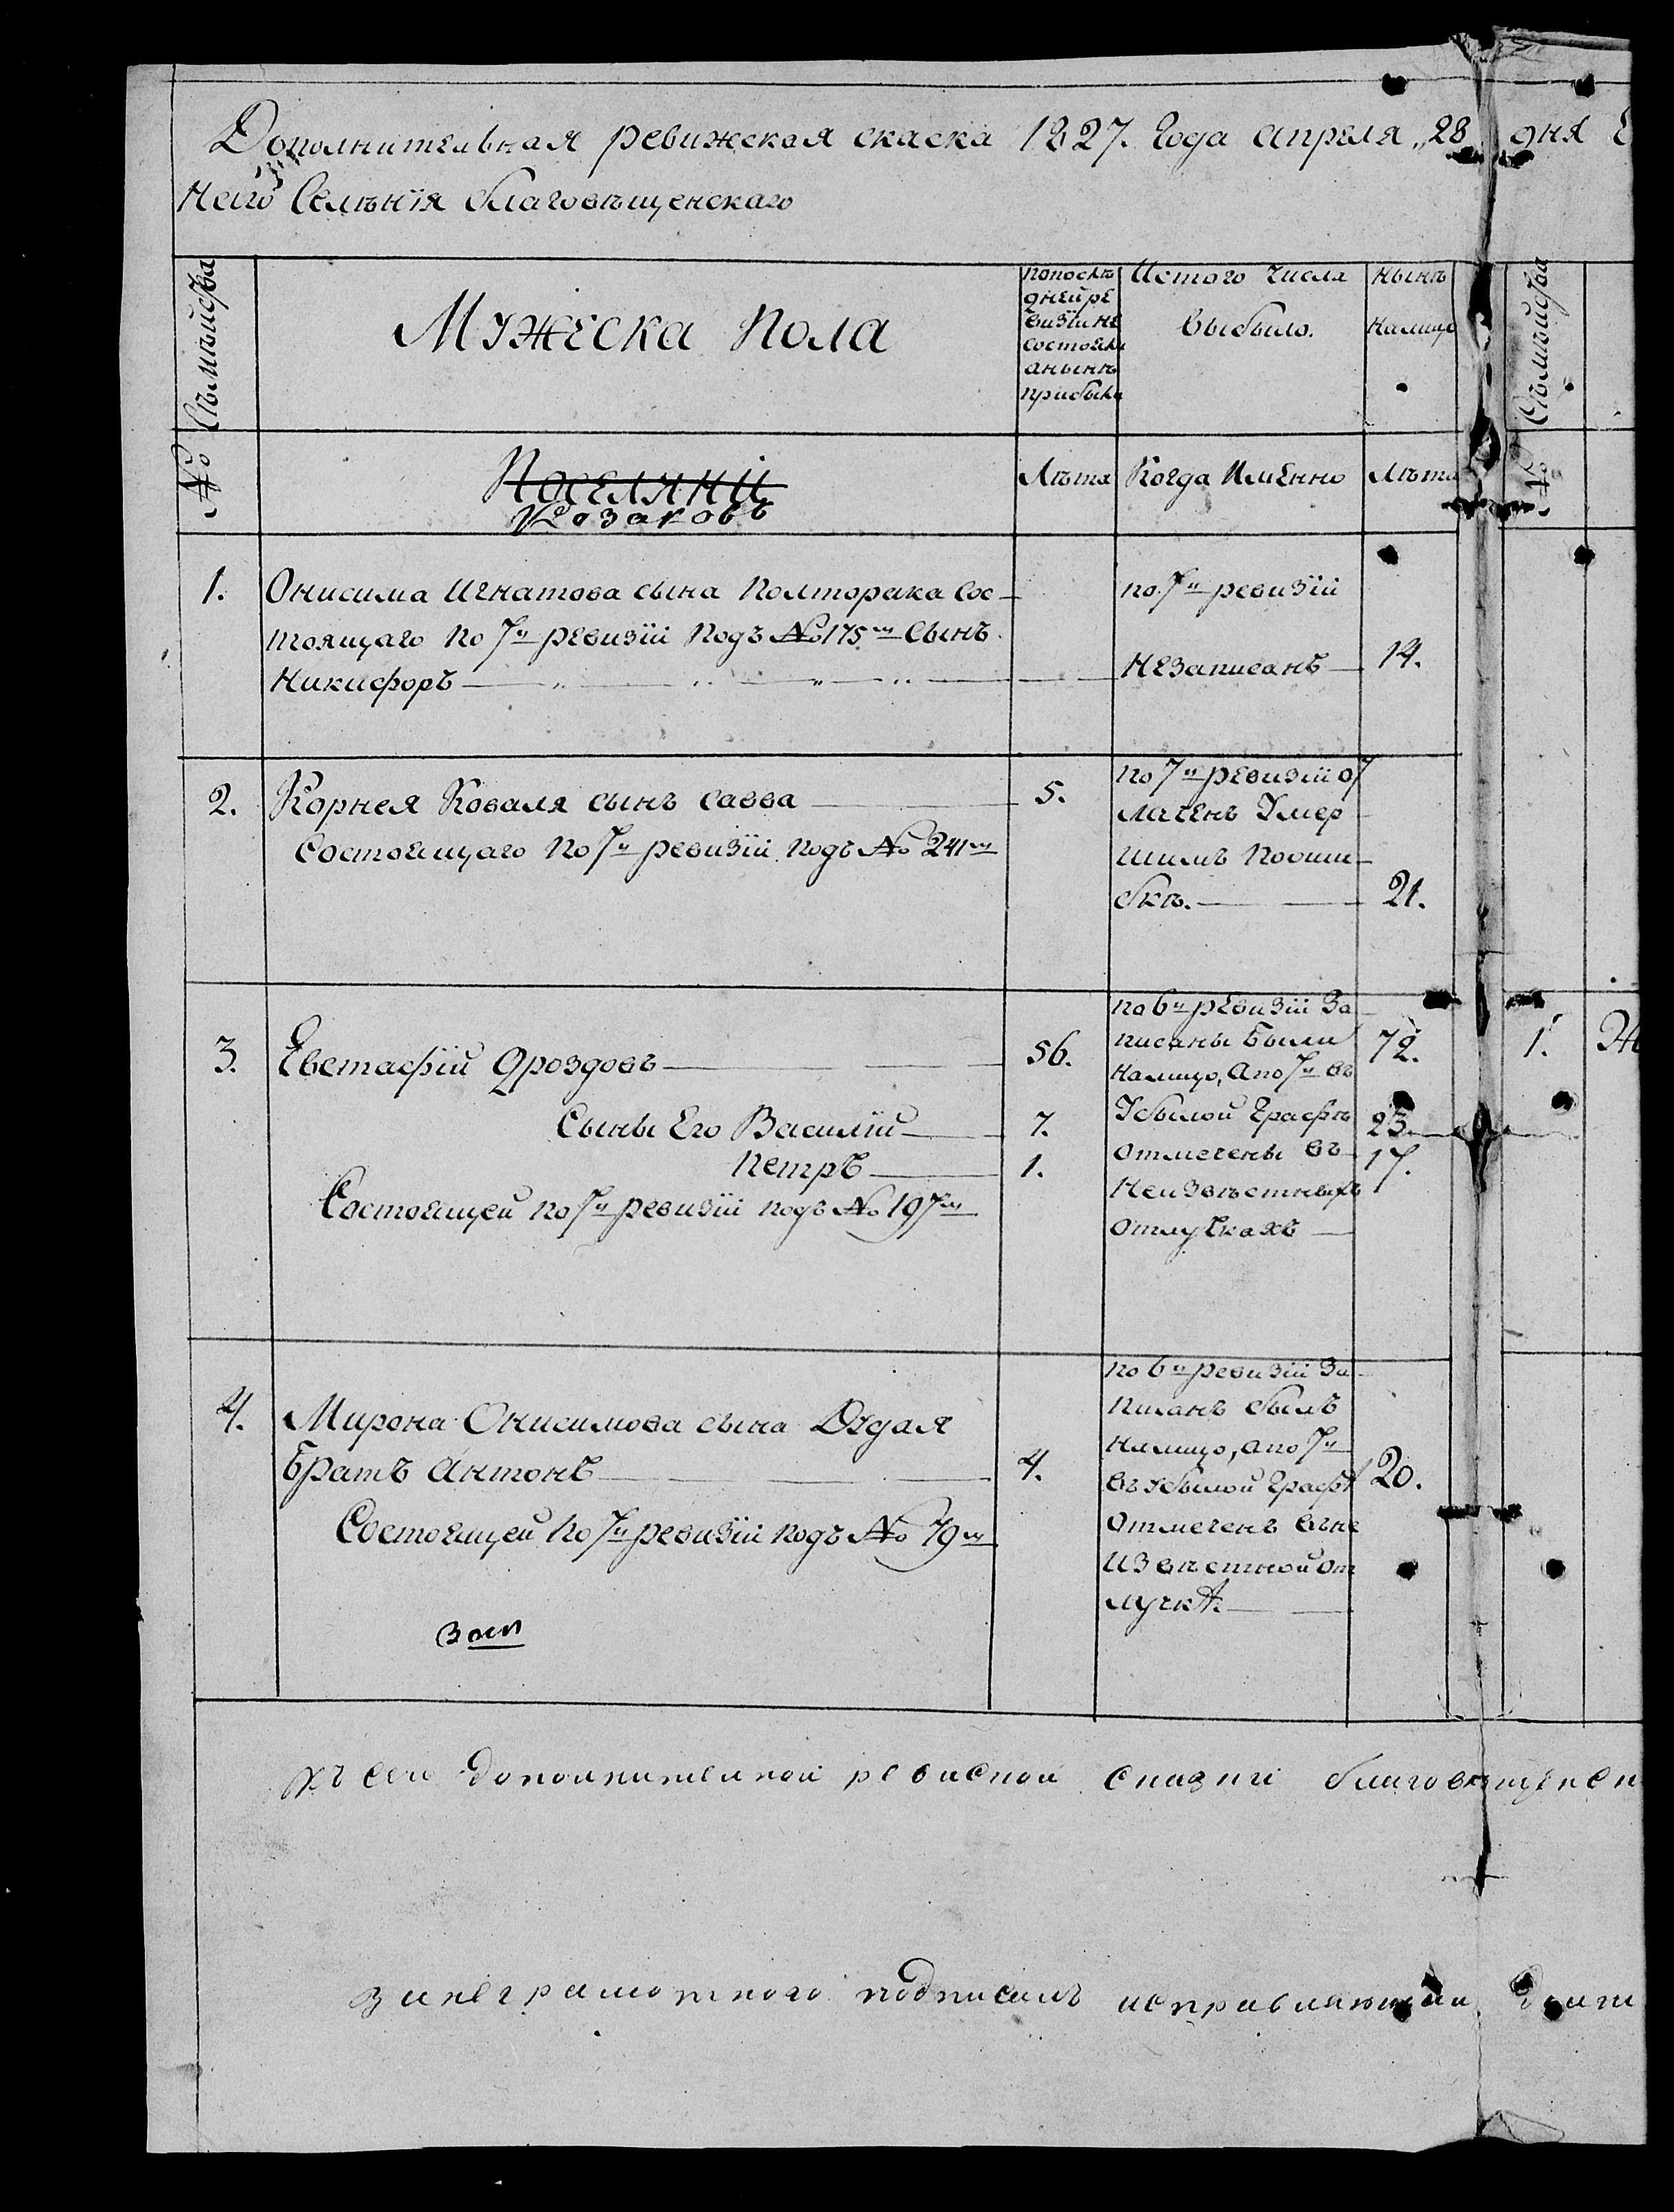 Дополнительная ревижская скаска 1827. Года апреля „28 дня Е
Селѣнія благовѣщенскаго
№ Сѣмѣйства
Мужеска Пола
попослѣ
днейре
визіине
состояли
анынѣ
прибыли
Истого Числа
выбыло.
нынѣ
налицо
№ Сѣмѣйства
Поселяни
Козаковъ
Лѣта
Когда Именно
Лѣта
1.
Онисима Игнатова сына Полторака Сос-
тоящаго По 7й ревизіи Подъ №175м Сынъ
Никифоръ
по 7й ревизіи
Незаписанъ
14.
2.
Корнея Коваля сынъ Савва
Состоящаго По 7й ревизіи подъ № 241м
5.
по 7й ревизіи от
мѣченъ Умер
шимъ Пооши-
бкѣ.
21.
3.
Евстафій Дроздовъ
Сыны Его Василій
Петръ
Состоящей по 7й ревизіи подъ № 197м
56.
7.
1.
по 6й ревизіи За
писаны Были
Налицо, Апо 7й въ
Убылой Графѣ
отмечены въ
Неизвѣстныхъ
отлучкахъ
72.
23.
17.
1.
Ж
4.
Мирона Онисимова сына Дудая
Братъ Антонъ
Состоящей по 7й ревизіи подъ № 79м
4.
по 6й ревизіи За-
писанъ былъ
Налицо, апо 7й
въ убылой Графѣ
отмеченъ вне
извѣстной от
лучкѣ
20.
ксей дополнителной ревиской сказки благовещенск
занеграмотного подписалъ исправляющий долж